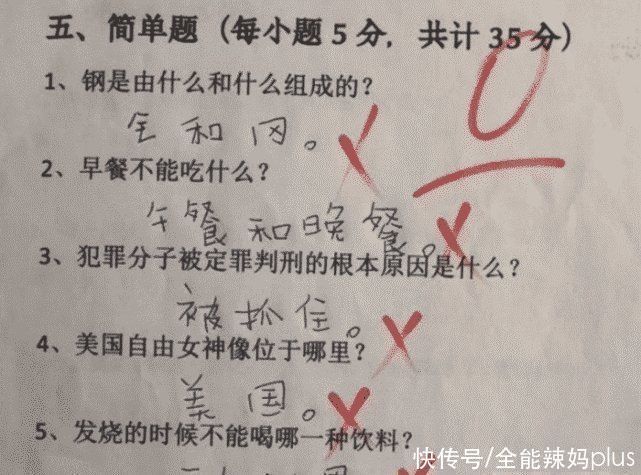 五、简单题（每小题5分，共计35分）
0
1、钢是由什么和什么组成的？
全和冈。
2、早餐不能吃什么？
午餐和晚餐。
3、犯罪分子被定罪判刑的根本原因是什么？
被抓住。
4、美国自由女神像位于哪里？
美国。
5、发烧的时候不能喝哪一种饮料？
快传号/全能辣妈plus